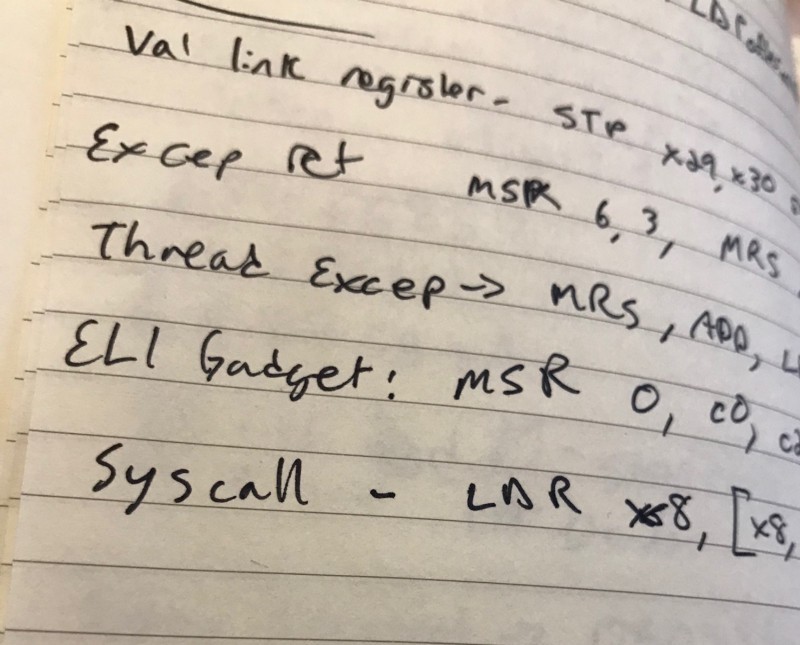 Val link register - STP x29, x30
Excep ret MSR 6, 3, MRS
Thread Excep -> MRS, ADD,
EL1 Gadget: MSR 0, c0,
Syscall - LDR x8, [x8,